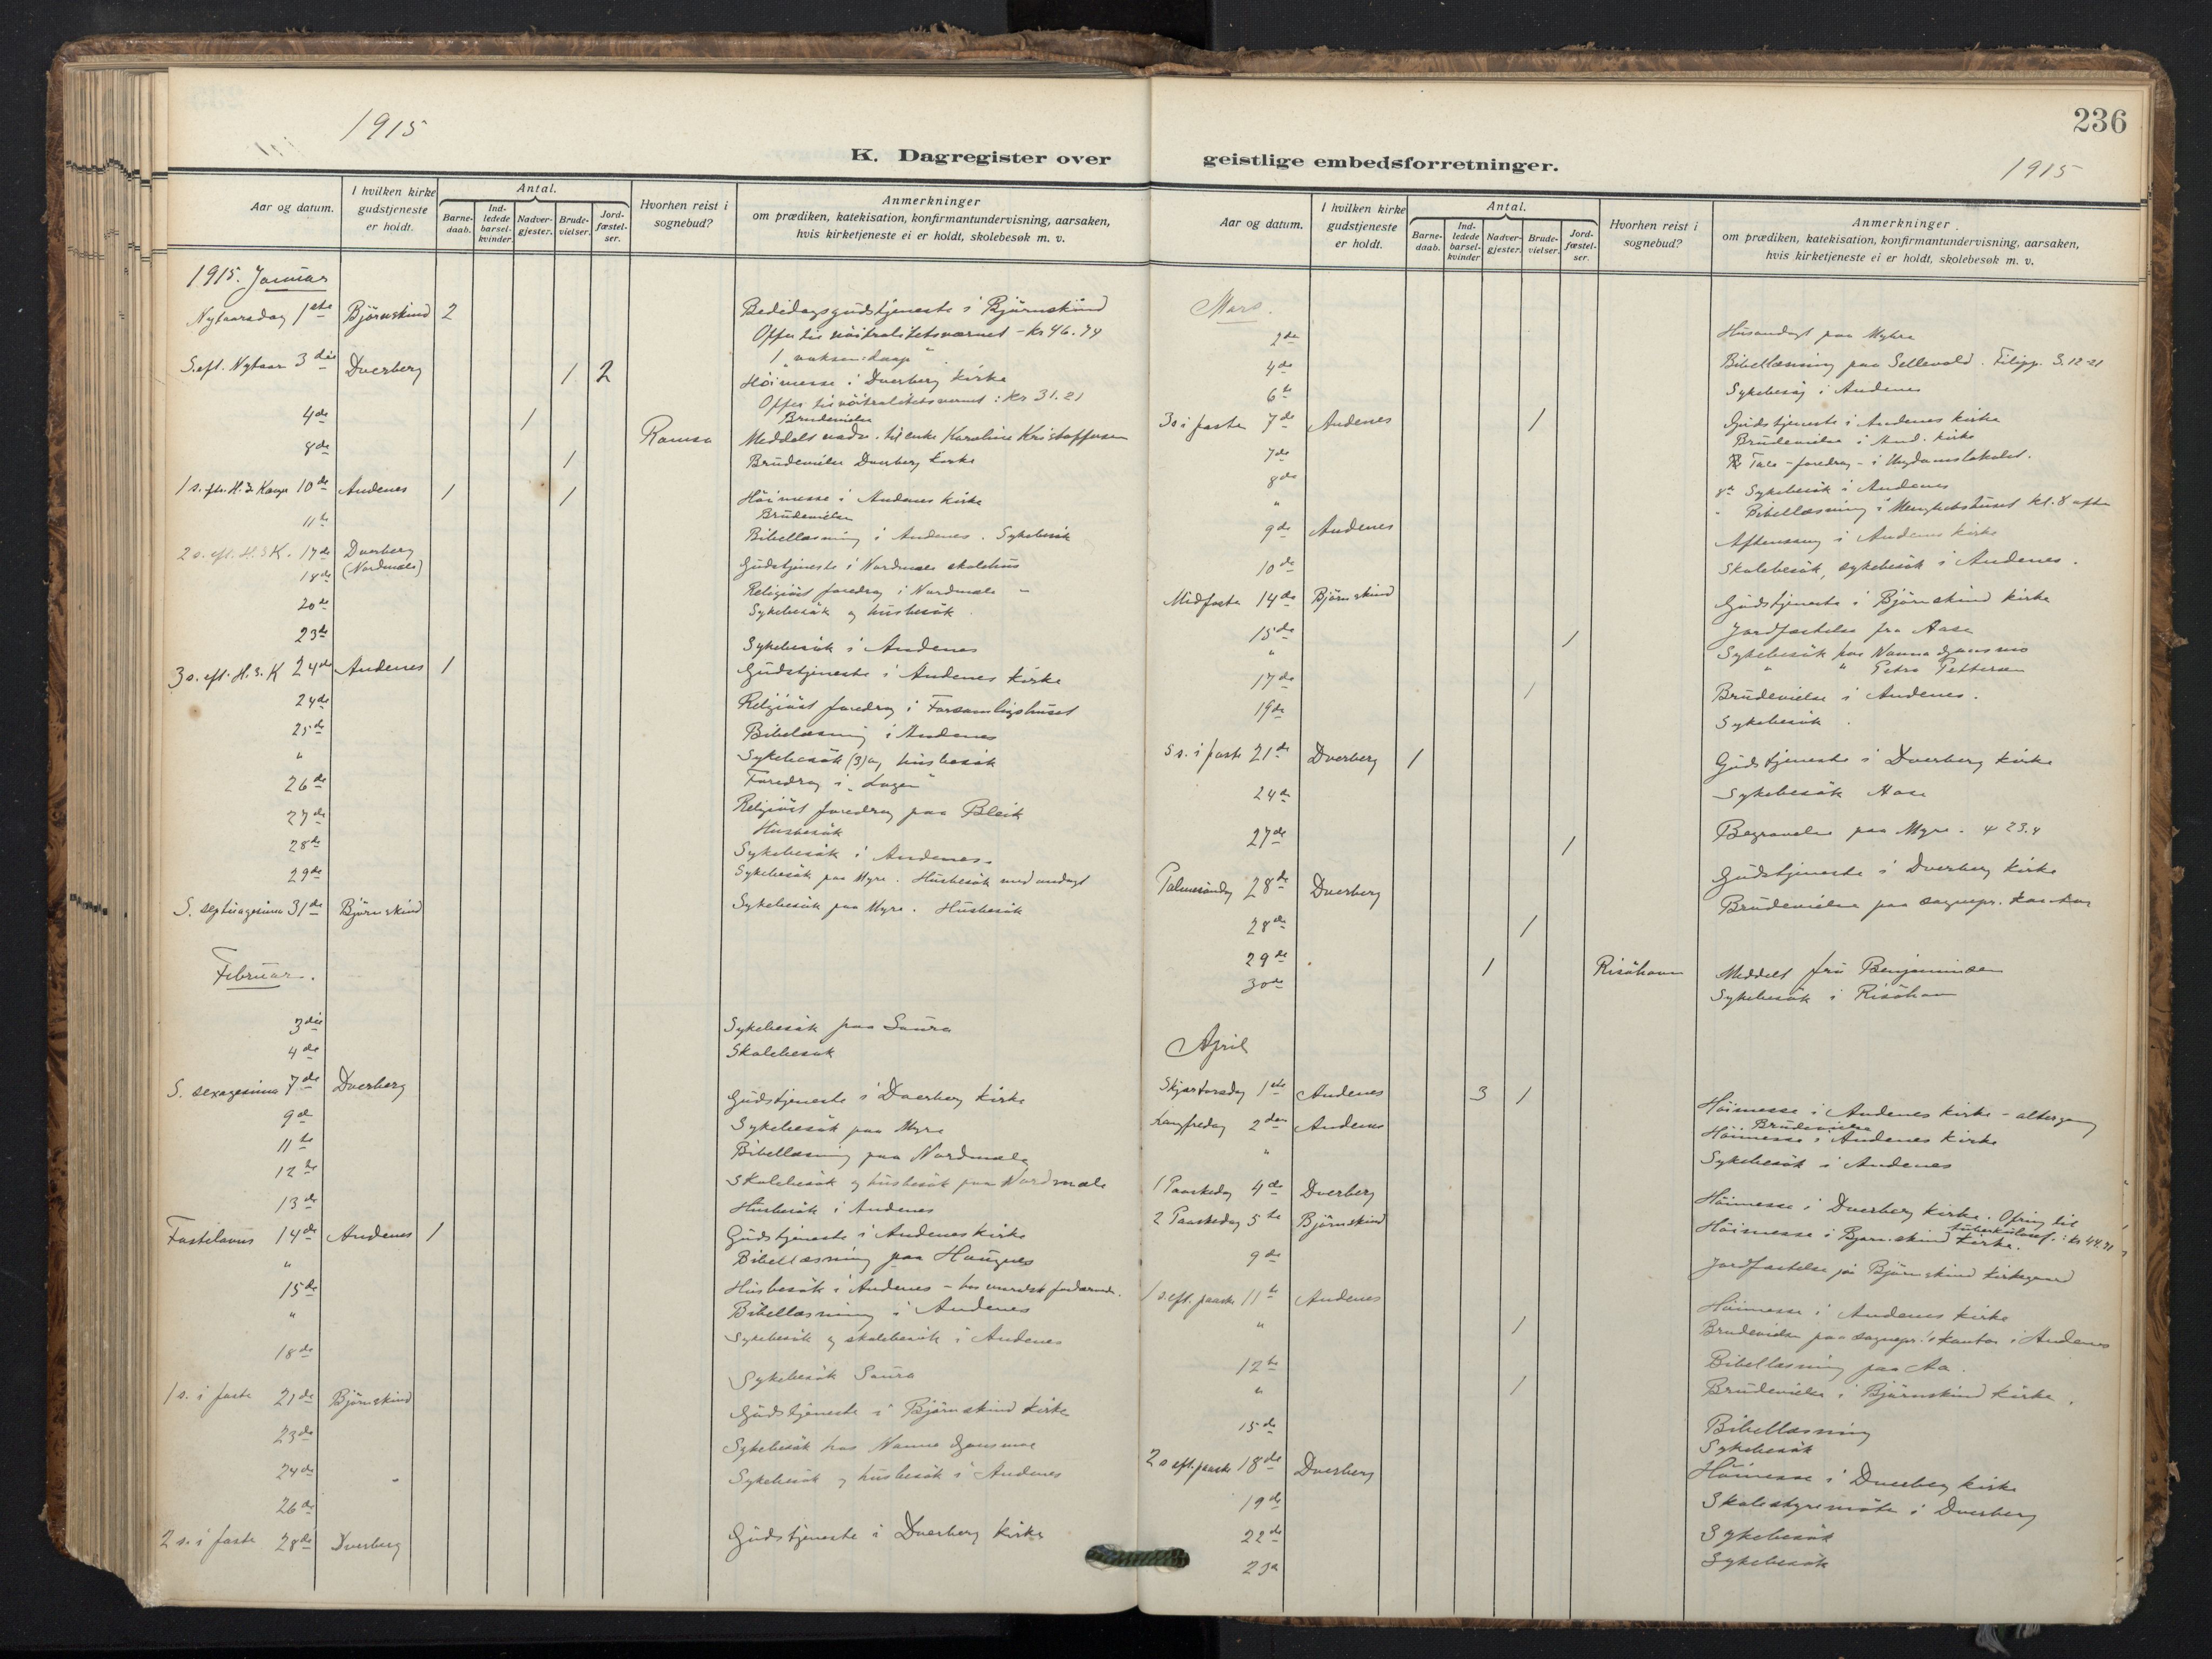 1915
K. Dagregister over
Aar og datum.
I hvilken kirke gudstjeneste er holdt.
Antal.
Barne-daab.
Ind-ledede barsel-kvinder.
Nadver-gjester.
Brude-vielser.
Jord-fæstel-ser.
Hvorhen reist i sognebud?
Anmerkninger
om prædiken, katekisation, konfirmantundervisning, aarsaken,
hvis kirketjeneste ei er holdt, skolebesøk m. v.
1915. Januar
Nytaarsdag 1ste Björnskind 2 Bededagsgudstjeneste i Björnskind
Offer til nöitralitetsværnet - kr 46.74
1 "voksen: daap"
S. eft. Nytaar 3die Dverberg 1 2 Höimesse i Dverberg kirke
Offer til nöitralitetsvernet: kr 31.21
Brudevielse
4de 1 Ramsa Meddelt nadv. til enke Karoline Kristoffersen
8de 1 Brudevielse Dverberg kirke
1 s. eft. H. 3 Konger 10de Andenes 1 1 Höimesse i Andenes kirke
Brudevielse
11te Bibellæsning i Andenes. Sykebesök
2 s. eft. H. 3 K. 17de Dverberg (Nordmæle) Gudstjeneste i Nordmæle skolehus
18de Religiöst foredrag i Nordmæle
20de Sykebesök og husbesök.
23de Sykebesök i Andenes
3 s. eft. H. 3. K 24de Andenes 1 Gudstjeneste i Andenes kirke
24de Religiöst foredrag i Forsamlingshuset
25de Bibellæsning i Andenes
" Sykebesök (3) og husbesök
26de Foredrag i "Logen"
27de Religiöst foredrag paa Bleik
Husbesök
28de Sykebesök i Andenes.
29de Sykebesök paa Myre. Husbesök med andagt
S. septuagesima 31te Björnskind Sykebesök paa Myre. Husbesök
Februar.
3die Sykebesök paa Saura
4de Skolebesök
S. sexagesima 7de Dverberg Gudstjeneste i Dverberg kirke
9de Sykebesök paa Myre
11te Bibellæsning paa Nordmæle
12te Skolebesök og husbesök paa Nordmæle
13de Husbesök i Andenes
Fastelavns 14de Andenes 1 Gudstjeneste i Andenes kirke
" Bibellæsning paa Haugnes
15de Husbesök i Andenes - hos
" Bibellæsning i Andenes
Sykebesök og skolebesök i Andenes
18de Sykebesök Saura
1 s. i faste 21de Björnskind Gudstjeneste i Björnskind kirke
23de Sykebesök hos Nanna
24de Sykebesök og husbesök i Andenes
26de
2 s. i faste 28de Dverberg Gudstjeneste i Dverberg kirke
236
geistlige embedsforretninger.
1915
Aar og datum.
I hvilken kirke gudstjeneste er holdt.
Antal.
Barne-daab.
Ind-ledede barsel-kvinder
Nadver-gjester.
Brude-vielser.
Jord-fæstel-ser.
Hvorhen reist i sognebud?
Anmerkninger
om prædiken, katekisation, konfirmantundervisning, aarsaken,
hvis kirketjeneste ei er holdt, skolebesøk m. v.
Mars.
2de Husandagt paa Myhre
4de Bibellæsning paa Sellevold. Filipp. 3.12-21
6te Sykebesög i Andenes
3 s i faste 7de Andenes 1 Gudstjeneste i Andenes kirke
Brudevielse i And. kirke
7de Tale - foredrag - i Ungdomslokalet.
8de 8de Sykebesök i Andenes
" " Bibellæsning i Menighetshuset kl. 8 aften
9de Andenes Aftensang i Andenes kirke
10de Skolebesök, sykebesök i Andenes.
Midfaste 14de Björnskind Gudstjeneste i Björnskind kirke
15de 1 Jordfæstelse fra Aase
" Sykebesök hos Nanna
" " Petra Pettersen
17de 1 Brudevielse i Andenes.
19de Sykebesök.
5 s. i faste 21de Dverberg 1 Gudstjeneste i Dverberg kirke
24de Sykebesök Aase
27de 1 Begravelse paa Myre. ψ 23.4
Palmesöndag 28de Dverberg Gudstjeneste i Dverberg kirke
28de 1 Brudevielse paa sognepr. kontor
29de 1 Risöhavn Meddelt fru Benjaminsen
30de Sykebesök i Risöhavn
April
Skjærtorsdag 1ste Andenes 3 1 Höimesse i Andenes kirke - altergang
Brudevielse
Langfredag 2den Andenes Höimesse i Andenes kirke
" Sykebesök i Andenes
1 Paaskedag 4de Dverberg Höimesse i Dverberg kirke. Ofring til
tuberkulosef.: kr 44.71
2 Paaskedag 5te Björnskind Höimesse i Björnskind kirke.
9de Jordfæstelse på Björnskind kirkegaard
1 s. eft. paaske 11te Andenes Höimesse i Andenes kirke
" 1 Brudevielse paa sognepr.'s kontor i Andenes
12te Bibellæsning paa Aa.
" 1 Brudevielse i Björnskind kirke.
15de Bibellæsning
Sykebesök
2 s eft. paaske 18de Dverberg Höimesse i Dverberg kirke
19de Skolestyremöte i Dverberg
22de Sykebesök
23d Sykebesök